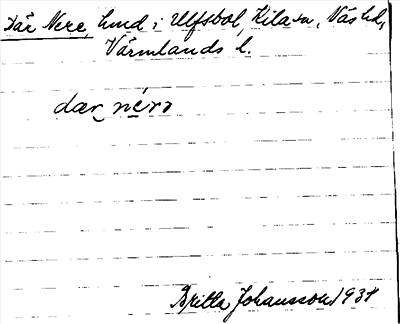 Där Nere, hind i Ulfsbol, Kila sn, Näs hd,
Värmlands l.
dær néro
Britta Johansson 1934